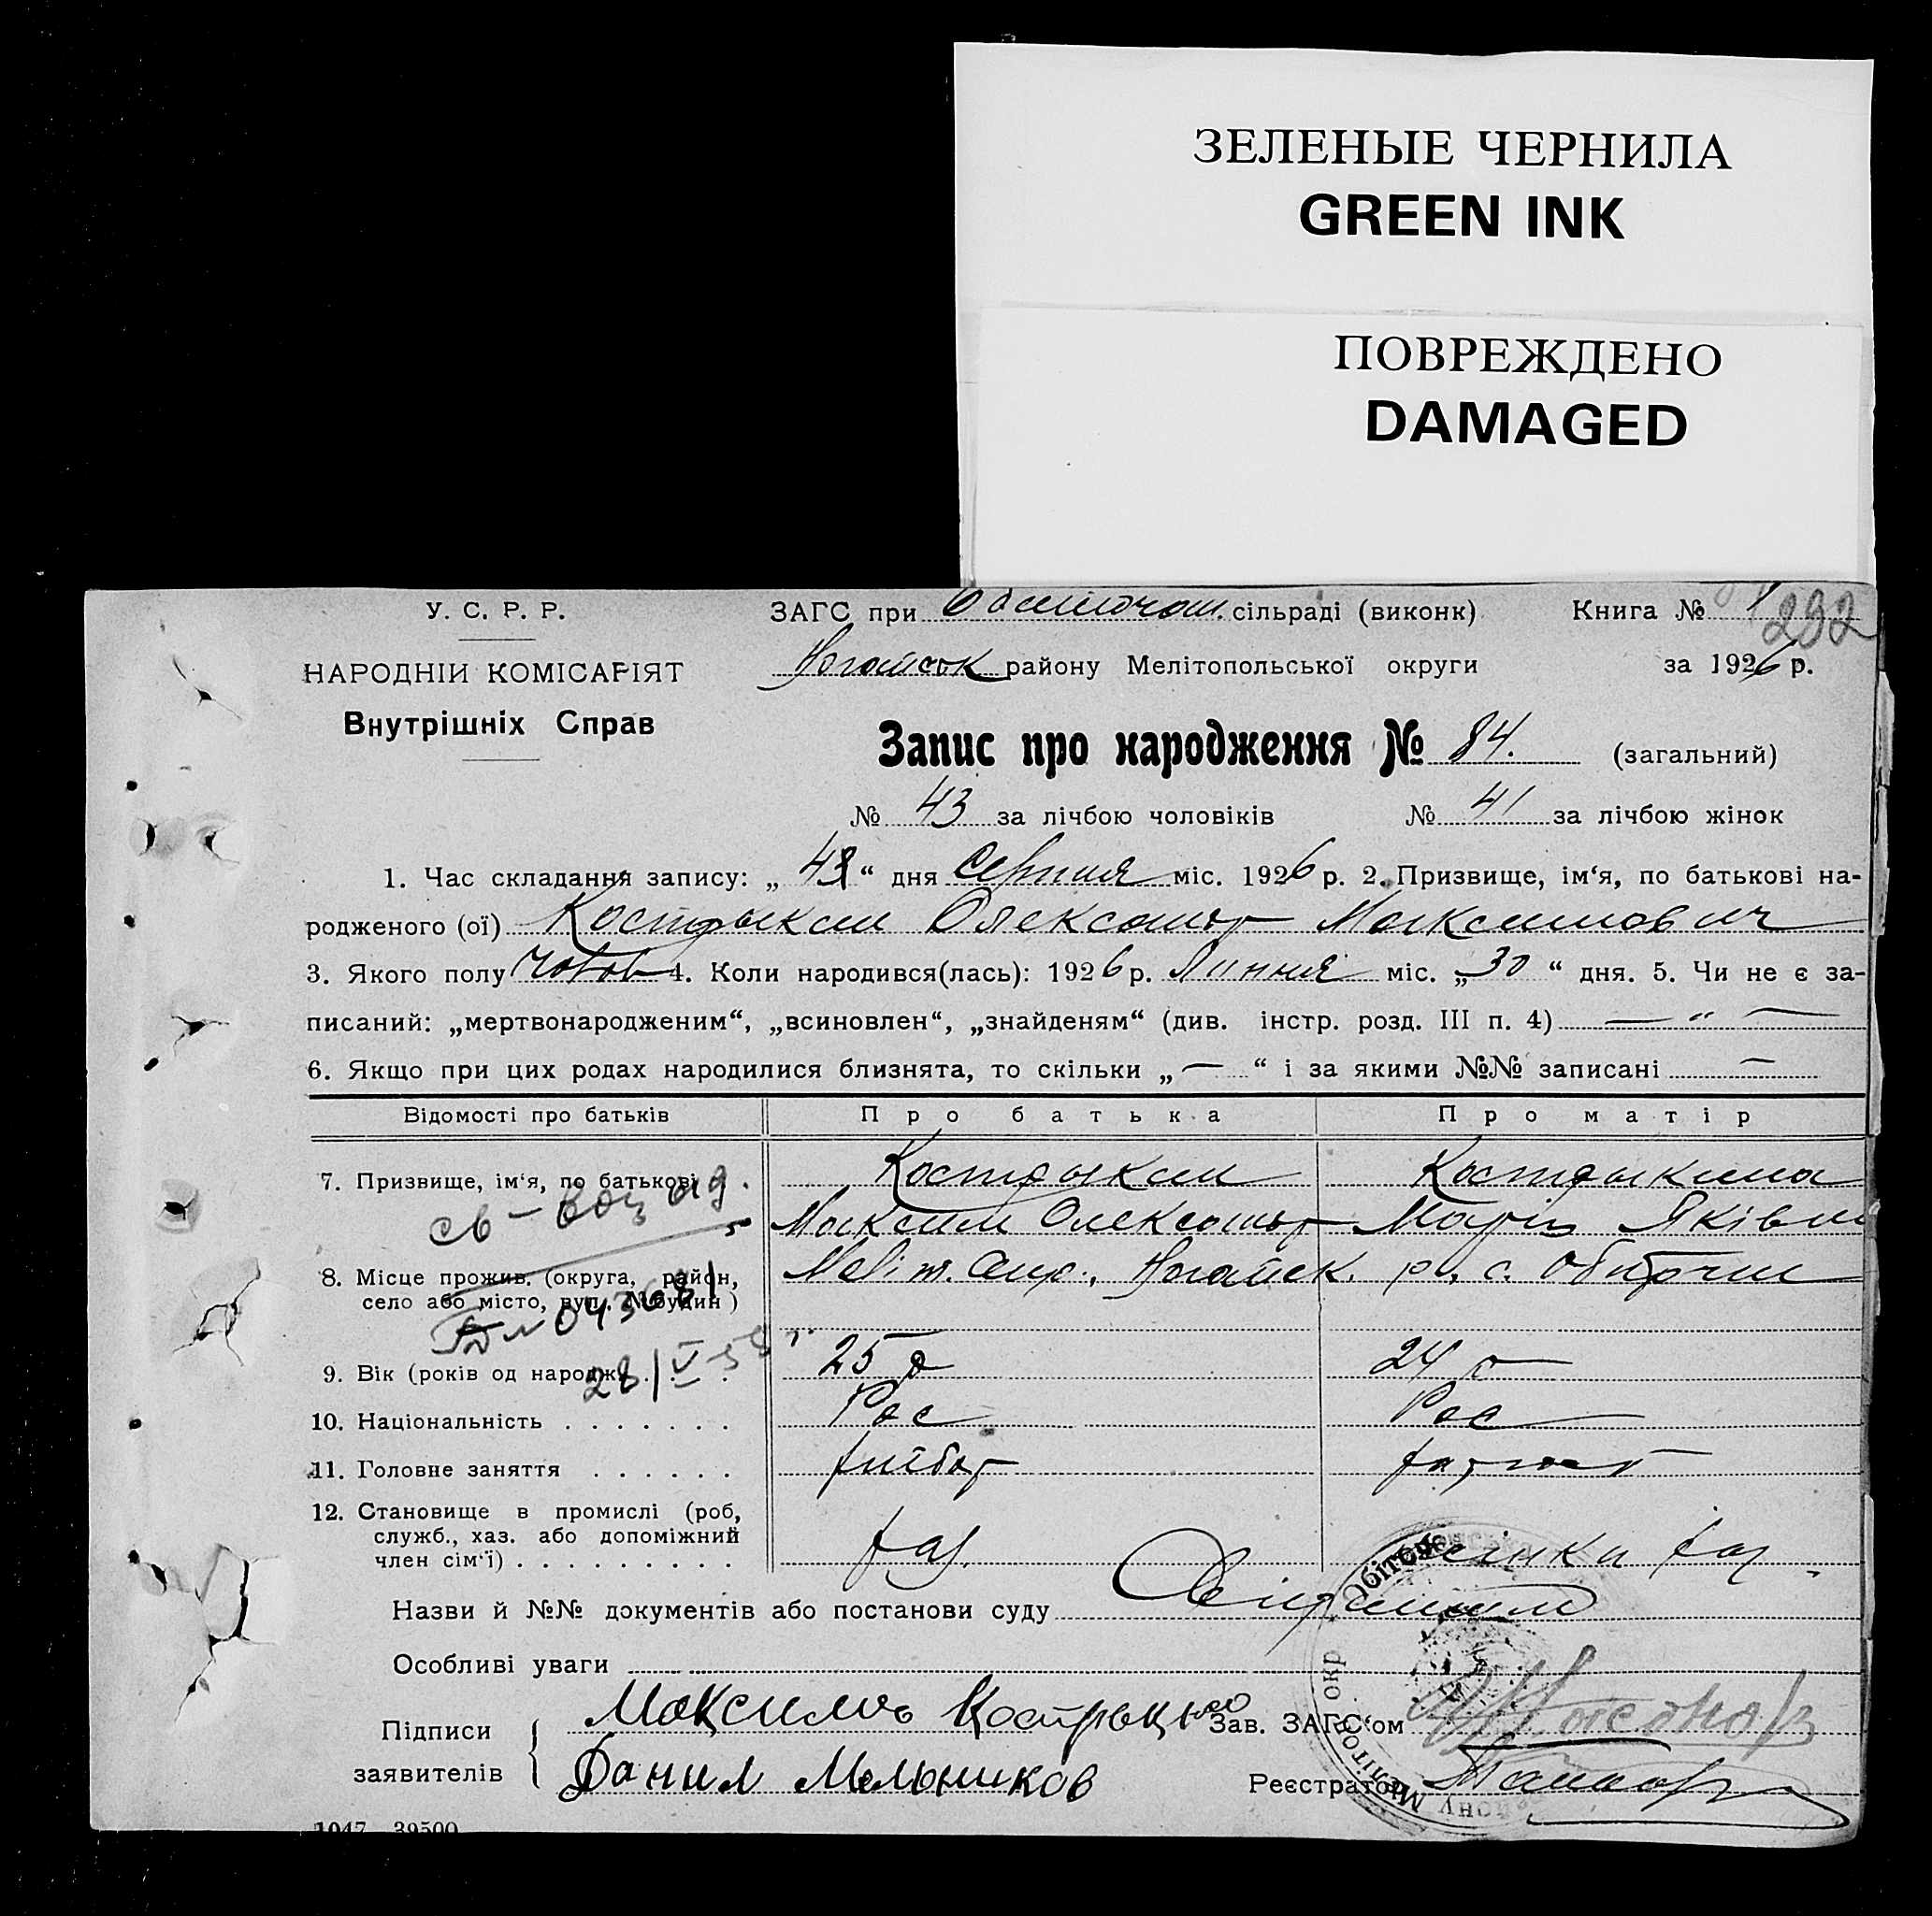 ЗЕЛЕНЫЕ ЧЕРНИЛА
GREEN INK
ПОВРЕЖДЕНО
DAMAGED
У. С. Р. Р. ЗАГС при сільраді (виконк) Книга № 1 292
НАРОДНІЙ КОМІСАРІЯТ Ногайськ району Мелітопольської округи за 1926 р.
Внутрішніх Справ
Запис про народження № 84. (загальний)
№ 43 за лічбою чоловіків № 41 за лічбою жінок
1. Час складання запису: „ “ дня Серпня міс. 1926 р. 2. Призвище, ім‘я, по батькові на-
родженого (ої) Кострыкин Олександр Максимович
3. Якого полу Чолов 4. Коли народився(лась): 1926 р. Липня міс. „30 “ дня. 5. Чи не є за-
писаний: „мертвонародженим“, „всиновлен“, „знайденям“ (див. інстр. розд. III п. 4) — „ —
6. Якщо при цих родах народилися близнята, то скільки „ — “ і за якими №№ записані —
Відомості про батьків Про батька Про матір
7. Призвище, ім‘я, по батькові Кострыкин Кострыкина
св- выд. Максим Олександр Марія Яківна
8. Місце прожив. (округа, район, Меліт. окр., Ногайск. р., с. Обиточни
село або місто, вул., № будин)
043681
9. Вік (років од народж. . . 25 24
28/V-
10. Національність . . . . . . . Рос Рос
11. Головне заняття . . . . . . хлібор
12. Становище в промислі (роб, служб., хаз. або допоміжний член сім‘ї) . . . . . . . . хаз. хаз.
Назви й №№ документів або постанови суду
Особливі уваги
Підписи Максимъ Зав. ЗАГС‘ом
заявителів Данил Мельников Реєстратор
1047 39500